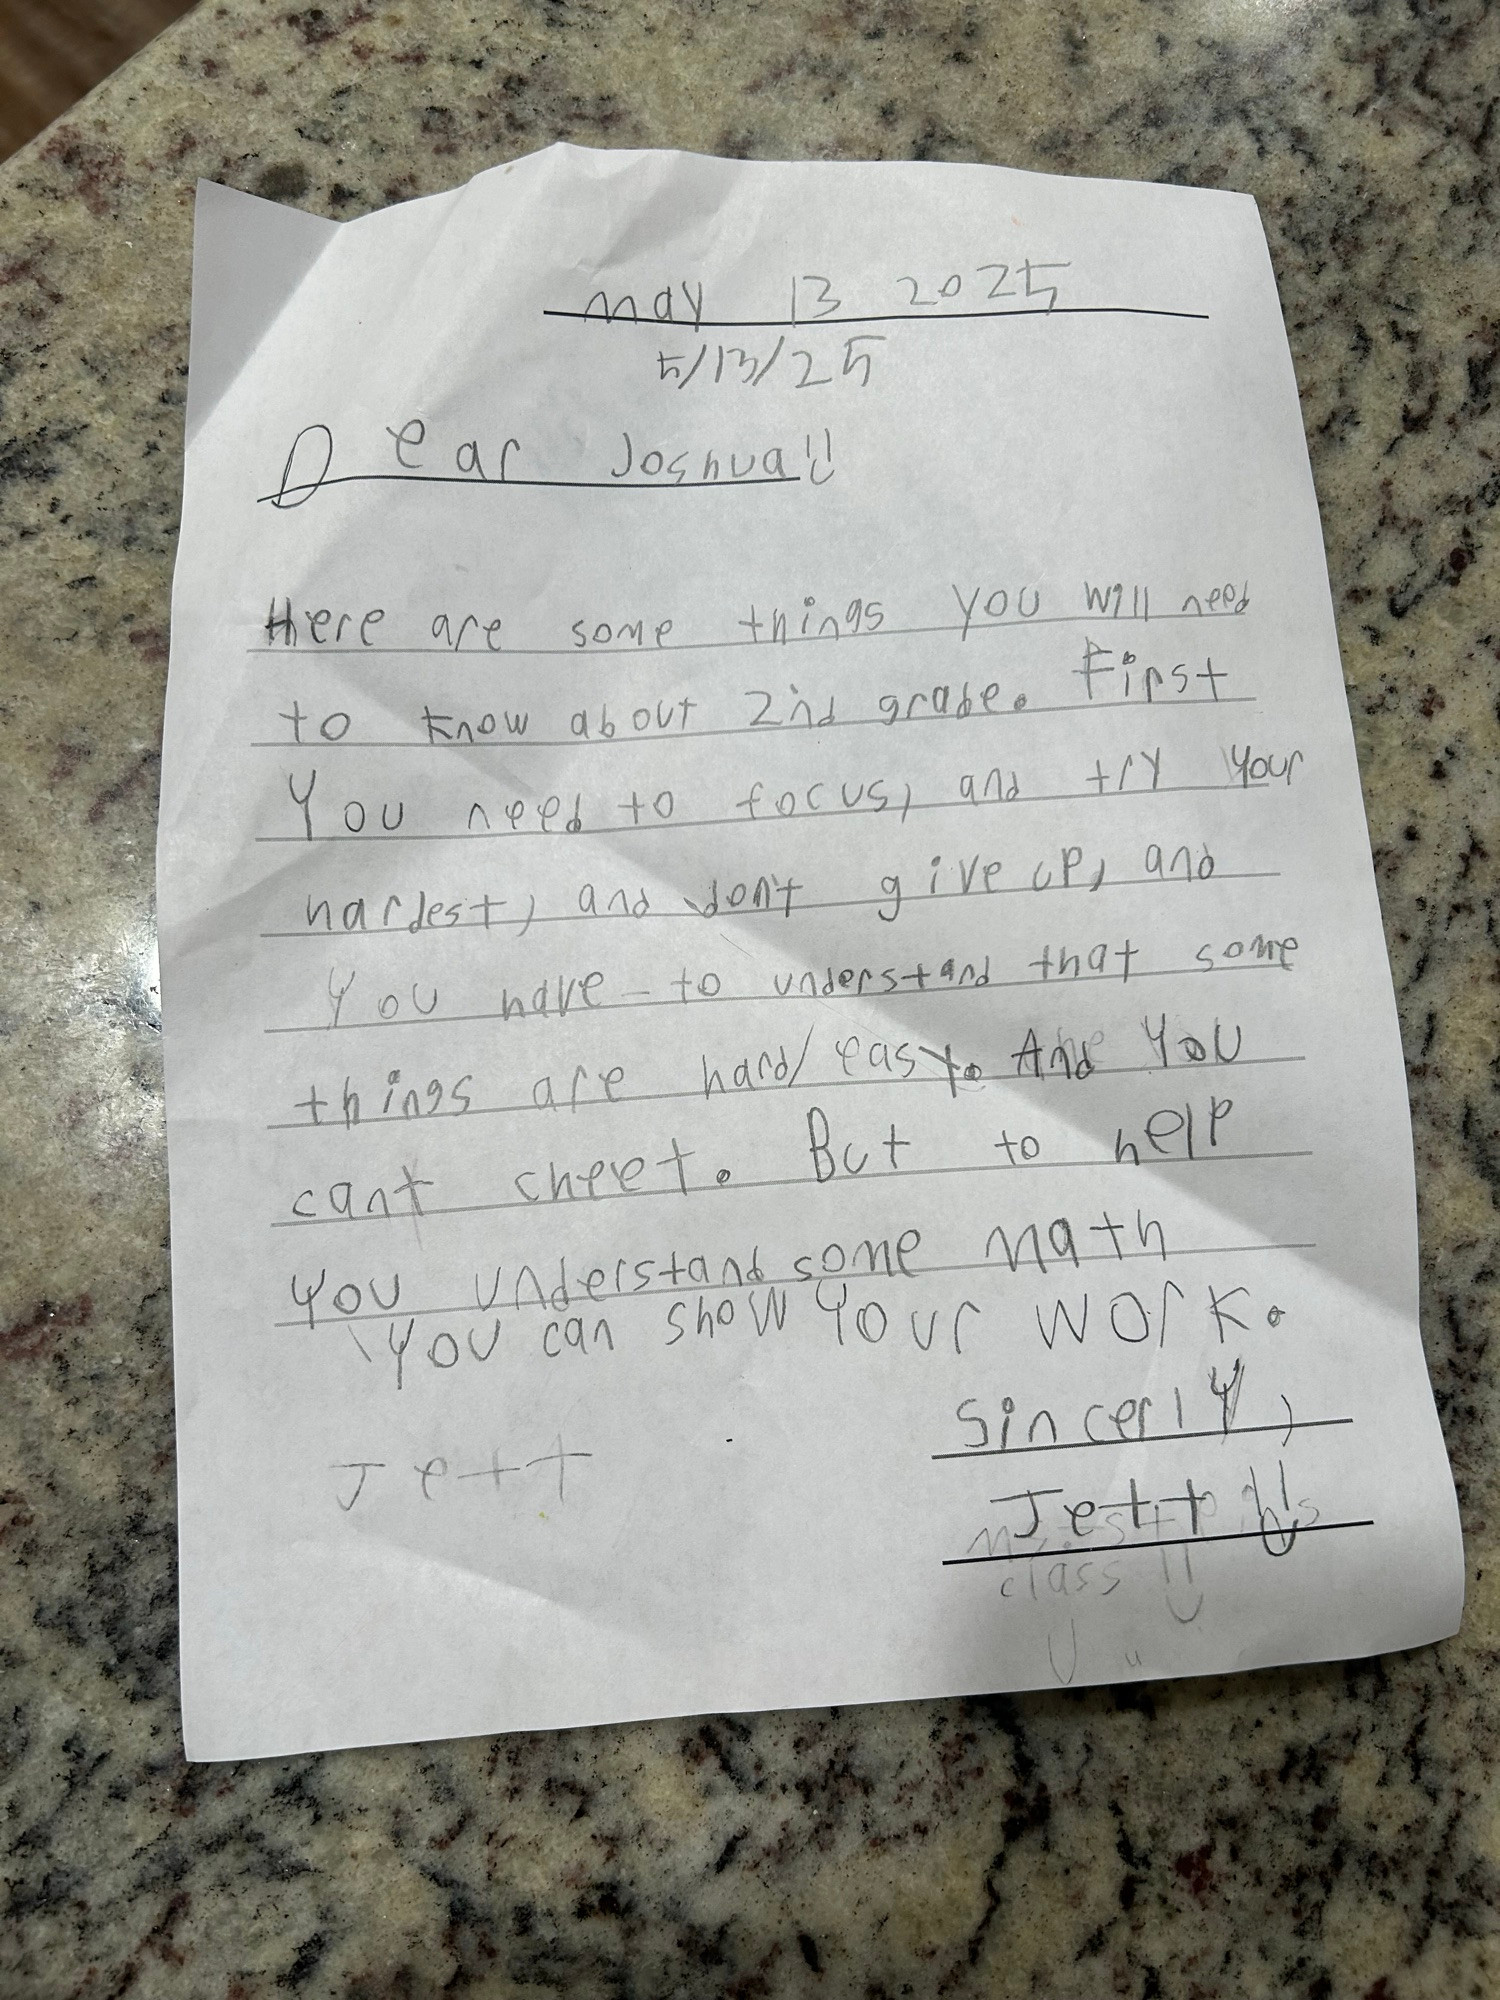 may 13 2025
5/13/25
Dear Joshua!!
Here are some things you will need
to know about 2nd grade. First
You need to focus, and try your
hardest, and don't give up, and
You have to understand that some
things are hard/easy. And You
cant cheet. But to help
you understand some math
You can show Your work.
Sincerly,
Jett
Jett !!
class !!